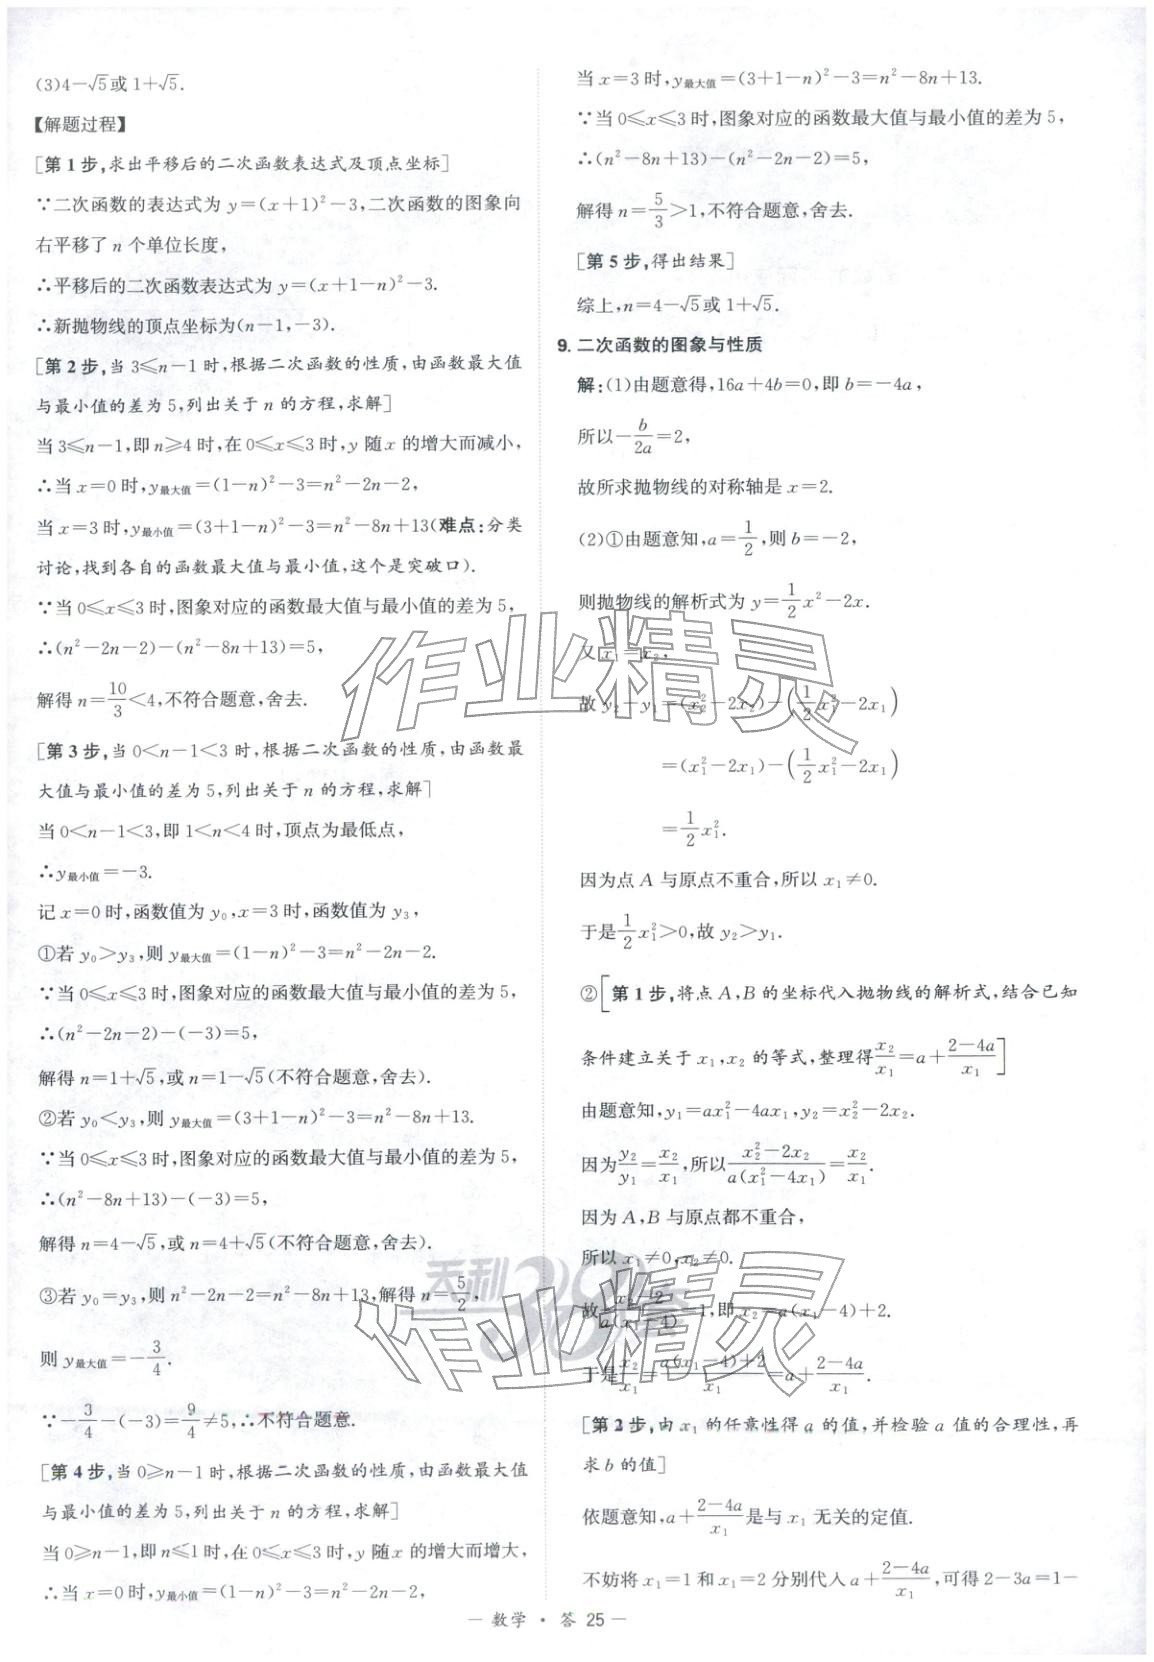 (3)4-√5或1+√5.
【解题过程】
[第1步,求出平移后的二次函数表达式及顶点坐标]
∵二次函数的表达式为y=(x+1)²-3,二次函数的图象向
右平移了n个单位长度,
∴平移后的二次函数表达式为y=(x+1-n)²-3.
∴新抛物线的顶点坐标为(n-1,-3).
[第2步,当3≤n-1时,根据二次函数的性质,由函数最大值
与最小值的差为5,列出关于n的方程,求解]
当3≤n-1,即n≥4时,在0≤x≤3时,y随x的增大而减小,
∴当x=0时,y最大值=(1-n)²-3=n²-2n-2,
当x=3时,y最小值=(3+1-n)²-3=n²-8n+13(难点:分类
讨论,找到各自的函数最大值与最小值,这个是突破口).
∵当0≤x≤3时,图象对应的函数最大值与最小值的差为5,
∴(n²-2n-2)-(n²-8n+13)=5,
解得n=10/3<4,不符合题意,舍去.
[第3步,当0<n-1<3时,根据二次函数的性质,由函数最
大值与最小值的差为5,列出关于n的方程,求解]
当0<n-1<3,即1<n<4时,顶点为最低点,
∴y最小值=-3.
记x=0时,函数值为y₀,x=3时,函数值为y₃,
①若y₀>y₃,则y最大值=(1-n)²-3=n²-2n-2.
∵当0≤x≤3时,图象对应的函数最大值与最小值的差为5,
∴(n²-2n-2)-(-3)=5,
解得n=1+√5,或n=1-√5(不符合题意,舍去).
②若y₀<y₃,则y最大值=(3+1-n)²-3=n²-8n+13.
∵当0≤x≤3时,图象对应的函数最大值与最小值的差为5,
∴(n²-8n+13)-(-3)=5,
解得n=4-√5,或n=4+√5(不符合题意,舍去).
③若y₀=y₃,则n²-2n-2=n²-8n+13,解得n=5/2,
则y最大值=-3/4.
∵-3/4-(-3)=9/4≠5,∴不符合题意.
[第4步,当0≥n-1时,根据二次函数的性质,由函数最大值
与最小值的差为5,列出关于n的方程,求解]
当0≥n-1,即n≤1时,在0≤x≤3时,y随x的增大而增大,
∴当x=0时,y最小值=(1-n)²-3=n²-2n-2,
当x=3时,y最大值=(3+1-n)²-3=n²-8n+13.
∵当0≤x≤3时,图象对应的函数最大值与最小值的差为5,
∴(n²-8n+13)-(n²-2n-2)=5,
解得n=5/3>1,不符合题意,舍去.
[第5步,得出结果]
综上,n=4-√5或1+√5.
9.二次函数的图象与性质
解:(1)由题意得,16a+4b=0,即b=-4a,
所以-b/2a=2,
故所求抛物线的对称轴是x=2.
(2)①由题意知,a=1/2,则b=-2,
则抛物线的解析式为y=1/2x²-2x.
又x₁=x₂,
故y₂-y₁=(x₂²-2x₂)-(1/2x₁²-2x₁)
=(x₁²-2x₁)-(1/2x₁²-2x₁)
=1/2x₁².
因为点A与原点不重合,所以x₁≠0.
于是1/2x₁²>0,故y₂>y₁.
②[第1步,将点A,B的坐标代入抛物线的解析式,结合已知
条件建立关于x₁,x₂的等式,整理得x₂/x₁=a+(2-4a)/x₁]
由题意知,y₁=ax₁²-4ax₁,y₂=x₂²-2x₂.
因为y₂/y₁=x₂/x₁,所以(x₂²-2x₂)/a(x₁²-4x₁)=x₂/x₁.
因为A,B与原点都不重合,
所以x₁≠0,x₂≠0.
故(x₂-2)/a(x₁-4)=1,即x₂=a(x₁-4)+2.
于是x₂/x₁=(a(x₁-4)+2)/x₁=a+(2-4a)/x₁.
[第2步,由x₁的任意性得a的值,并检验a值的合理性,再
求b的值]
依题意知,a+(2-4a)/x₁是与x₁无关的定值.
不妨将x₁=1和x₁=2分别代入a+(2-4a)/x₁,可得2-3a=1-
作业精灵
天利38套
作业精灵
— 数学 · 答 25 —